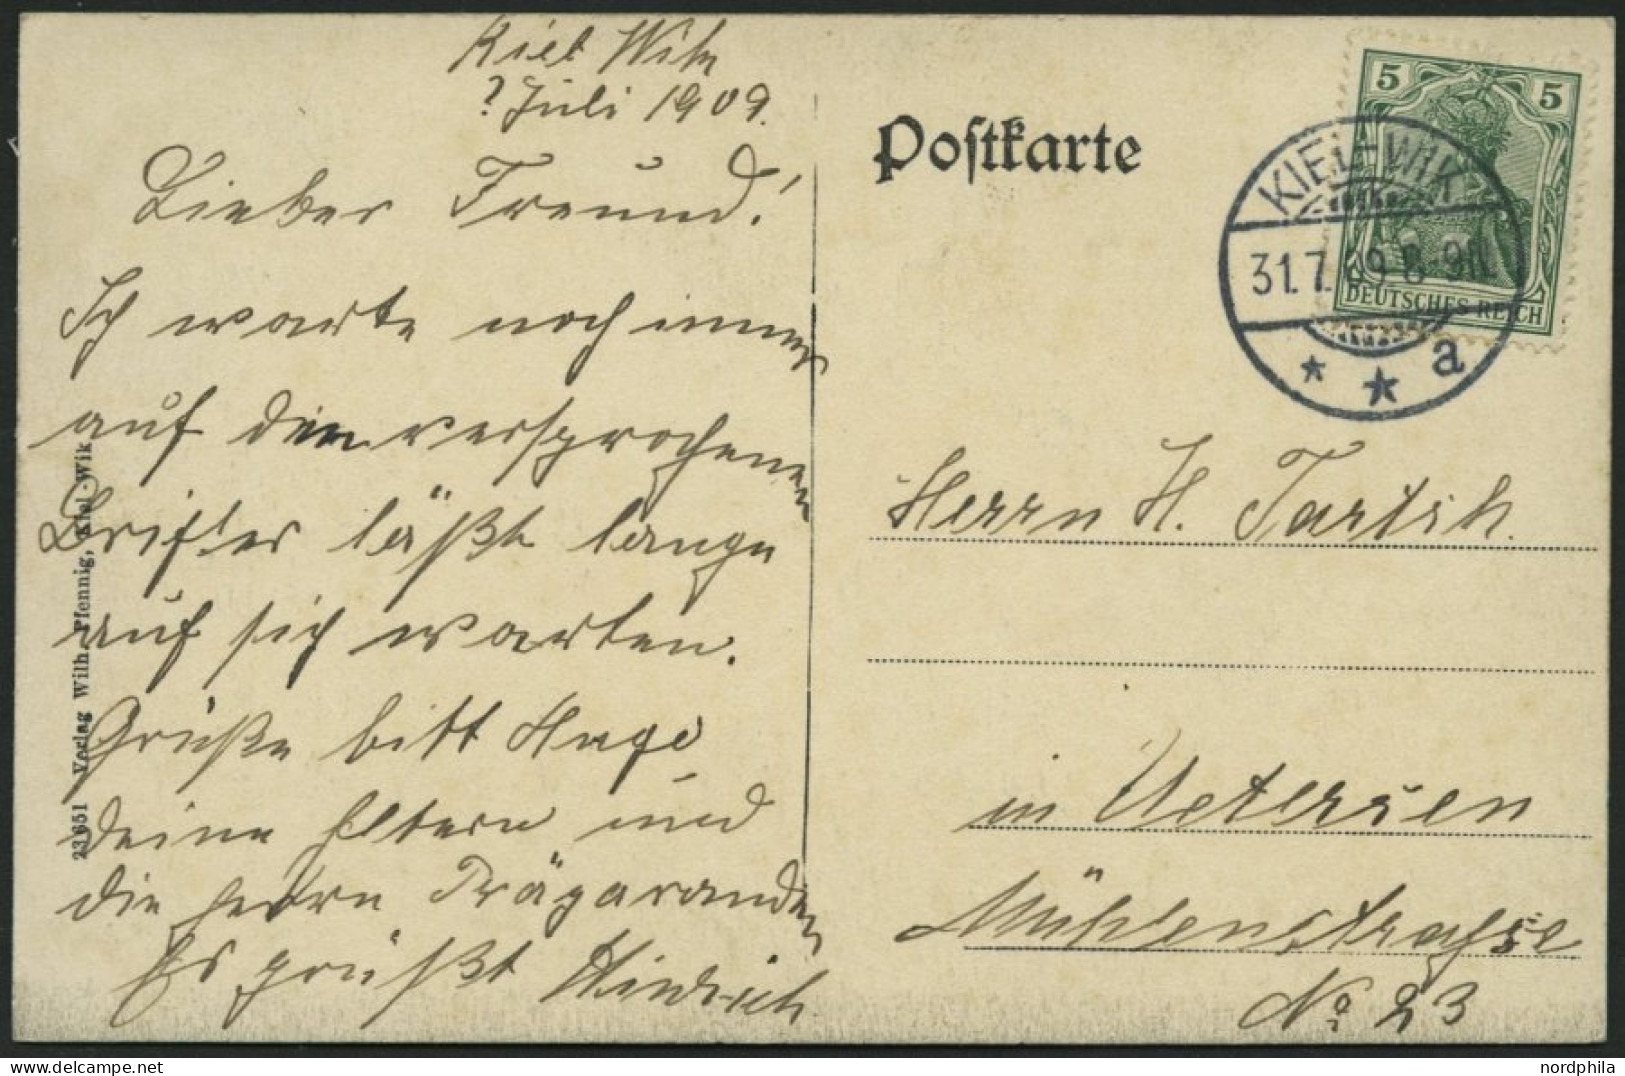 Kiel Wik
? Juli 1909.
Lieber Freund!
Ich warte noch immer
auf den versprochenen
Brief, er läßt lange
auf sich warten.
Grüße bitt Hugo
deine Eltern und
die Herrn Präparanden
Es grüßt Hindrich
23651 Verlag Wilh. Pfennig, Kiel-Wik
Postkarte
5 5
DEUTSCHES REICH
KIEL-WIK
31.7.09 8-9N.
* * a
Herrn H.
in Uetersen
Mühlenstraße
No 23
nordphila